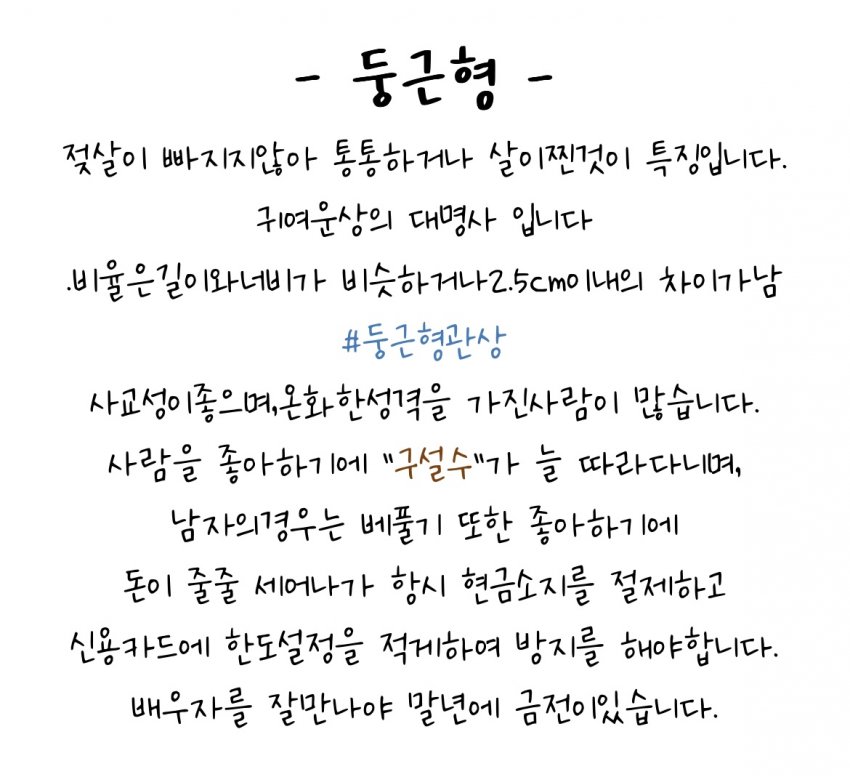 - 둥근형 -
젖살이 빠지지않아 통통하거나 살이찐것이 특징입니다.
귀여운상의 대명사 입니다
.비율은길이와너비가 비슷하거나2.5cm이내의 차이가남
#둥근형관상
사교성이좋으며,온화한성격을 가진사람이 많습니다.
사람을 좋아하기에 "구설수"가 늘 따라다니며,
남자의경우는 베풀기 또한 좋아하기에
돈이 줄줄 세어나가 항시 현금소지를 절제하고
신용카드에 한도설정을 적게하여 방지를 해야합니다.
배우자를 잘만나야 말년에 금전이있습니다.